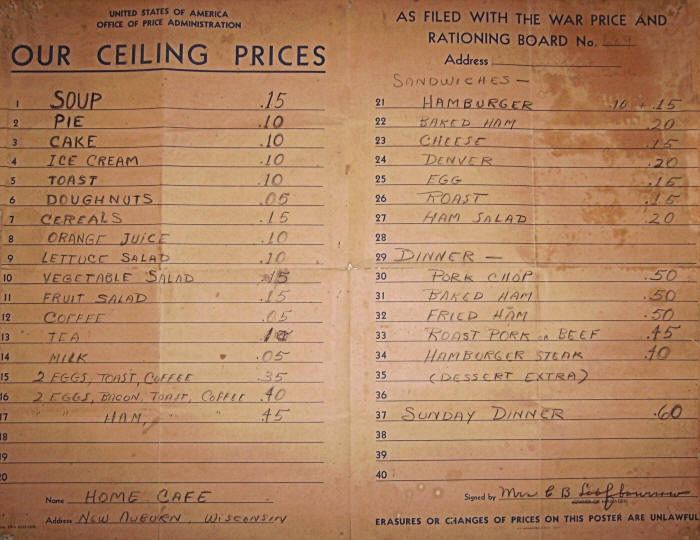 UNITED STATES OF AMERICA
OFFICE OF PRICE ADMINISTRATION
OUR CEILING PRICES
1 SOUP .15
2 PIE .10
3 CAKE .10
4 ICE CREAM .10
5 TOAST .10
6 DOUGHNUTS .05
7 CEREALS .15
8 ORANGE JUICE .10
9 LETTUCE SALAD .10
10 VEGETABLE SALAD .15
11 FRUIT SALAD .15
12 COFFEE .05
13 TEA
14 MILK .05
15 2 EGGS, TOAST, COFFEE .35
16 2 EGGS, BACON, TOAST, COFFEE .40
17 " HAM, " " .45
18
19
20
Name HOME CAFE
Address NEW AUBURN, WISCONSIN
AS FILED WITH THE WAR PRICE AND
RATIONING BOARD No.
Address
SANDWICHES —
21 HAMBURGER .10 + .15
22 BAKED HAM .20
23 CHEESE .15
24 DENVER .20
25 EGG .15
26 ROAST .15
27 HAM SALAD .20
28
29 DINNER —
30 PORK CHOP .50
31 BAKED HAM .50
32 FRIED HAM .50
33 ROAST PORK or BEEF .45
34 HAMBURGER STEAK .40
35 (DESSERT EXTRA)
36
37 SUNDAY DINNER .60
38
39
40
Signed by Mrs C B
ERASURES OR CHANGES OF PRICES ON THIS POSTER ARE UNLAWFUL